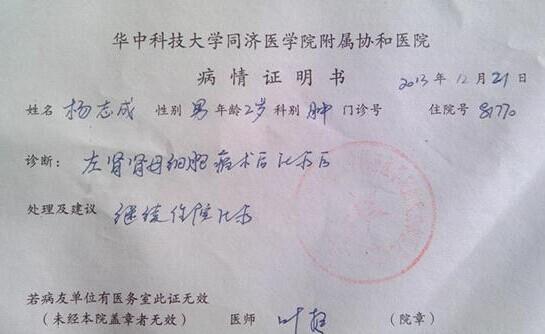 华中科技大学同济医学院附属协和医院
病情证明书
2013年12月21日
姓名 杨志成 性别 男 年龄 2岁 科别 肿 门诊号 住院号 81770
诊断: 左肾肾母细胞瘤术后化疗后
处理及建议 继续住院化疗
若病友单位有医务室此证无效
(未经本院盖章者无效) 医师 叶 (院章)